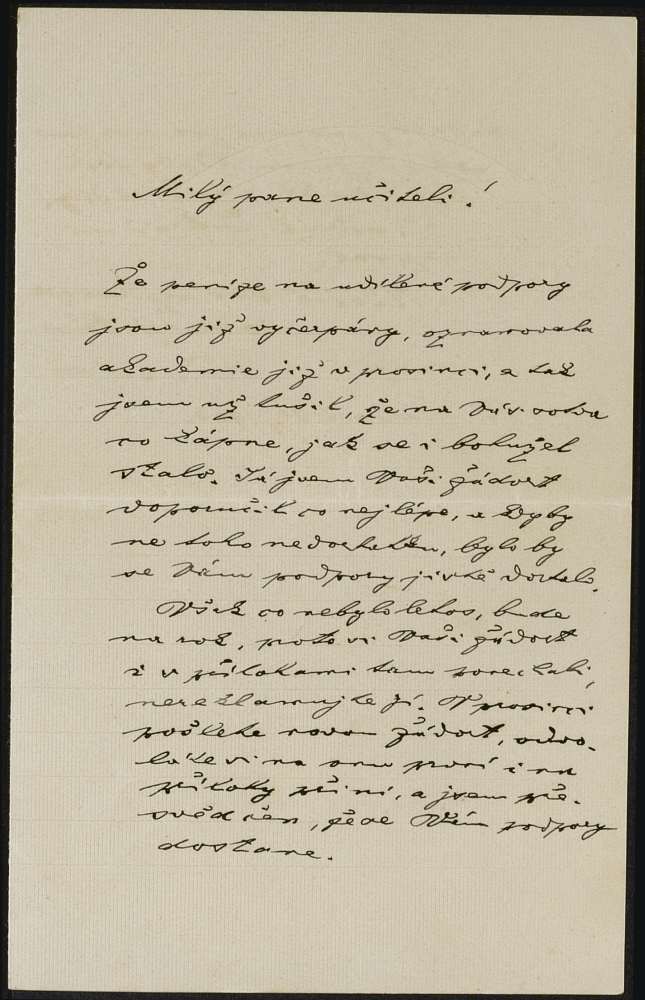 Milý pane učiteli!
Že peníze na udílené podpory
jsou již vyčerpány, oznamovala
akademie již v prosinci, a tak
jsem už tušil, že na Vás sotva
co kápne, jak se i bohužel
stalo. Já jsem Vaši žádost
doporučil co nejlépe, a kdyby
ne toho nedostatku, bylo by
se Vám podpory jistě dostalo.
Však co nebylo letos, bude
na rok, proto si Vaši žádost
i s přílohami tam ponechali,
nereklamujte jí. V prosinci
pošlete novou žádost, odvo-
láte si na onu první i na
přílohy při ní, a jsem pře-
svědčen, že se Vám podpory
dostane.